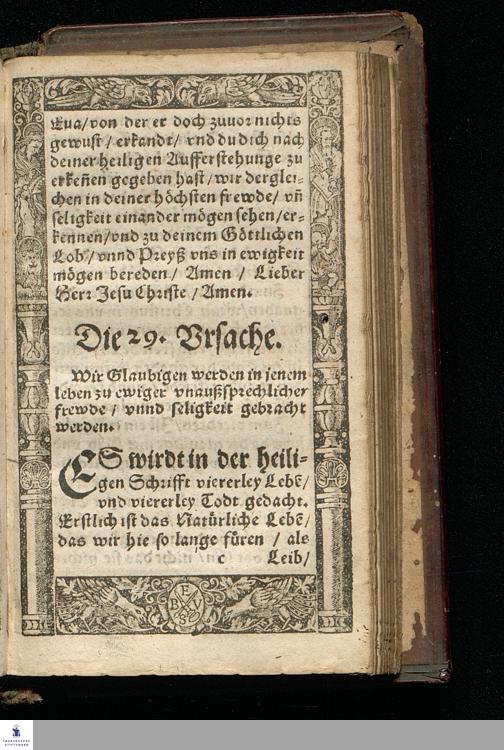 Eua/ von der er doch zuuor nichts
gewust / erkandt/ vnd du dich nach
deiner heiligen Aufferstehunge zu
erkeñen gegeben hast/ wir derglei-
chen in deiner höchsten frewde/ vñ
seligkeit einander mögen sehen/ er-
kennen/ vnd zu deinem Göttlichen
Lob/ vnnd Preyß vns in ewigkeit
mögen bereden / Amen / Lieber
Herr Jesu Christe / Amen.
Die 29. Vrsache.
Wir Glaubigen werden in jenem
leben zu ewiger vnaußsprechlicher
frewde / vnnd seligkeit gebracht
werden.
ES wirdt in der heili-
gen Schrifft viererley Lebẽ/
vnd viererley Todt gedacht.
Erstlich ist das Natürliche Lebẽ/
das wir hie so lange füren / als
c Leib/
E
B V
FRANCKESCHE
STIFTUNGEN